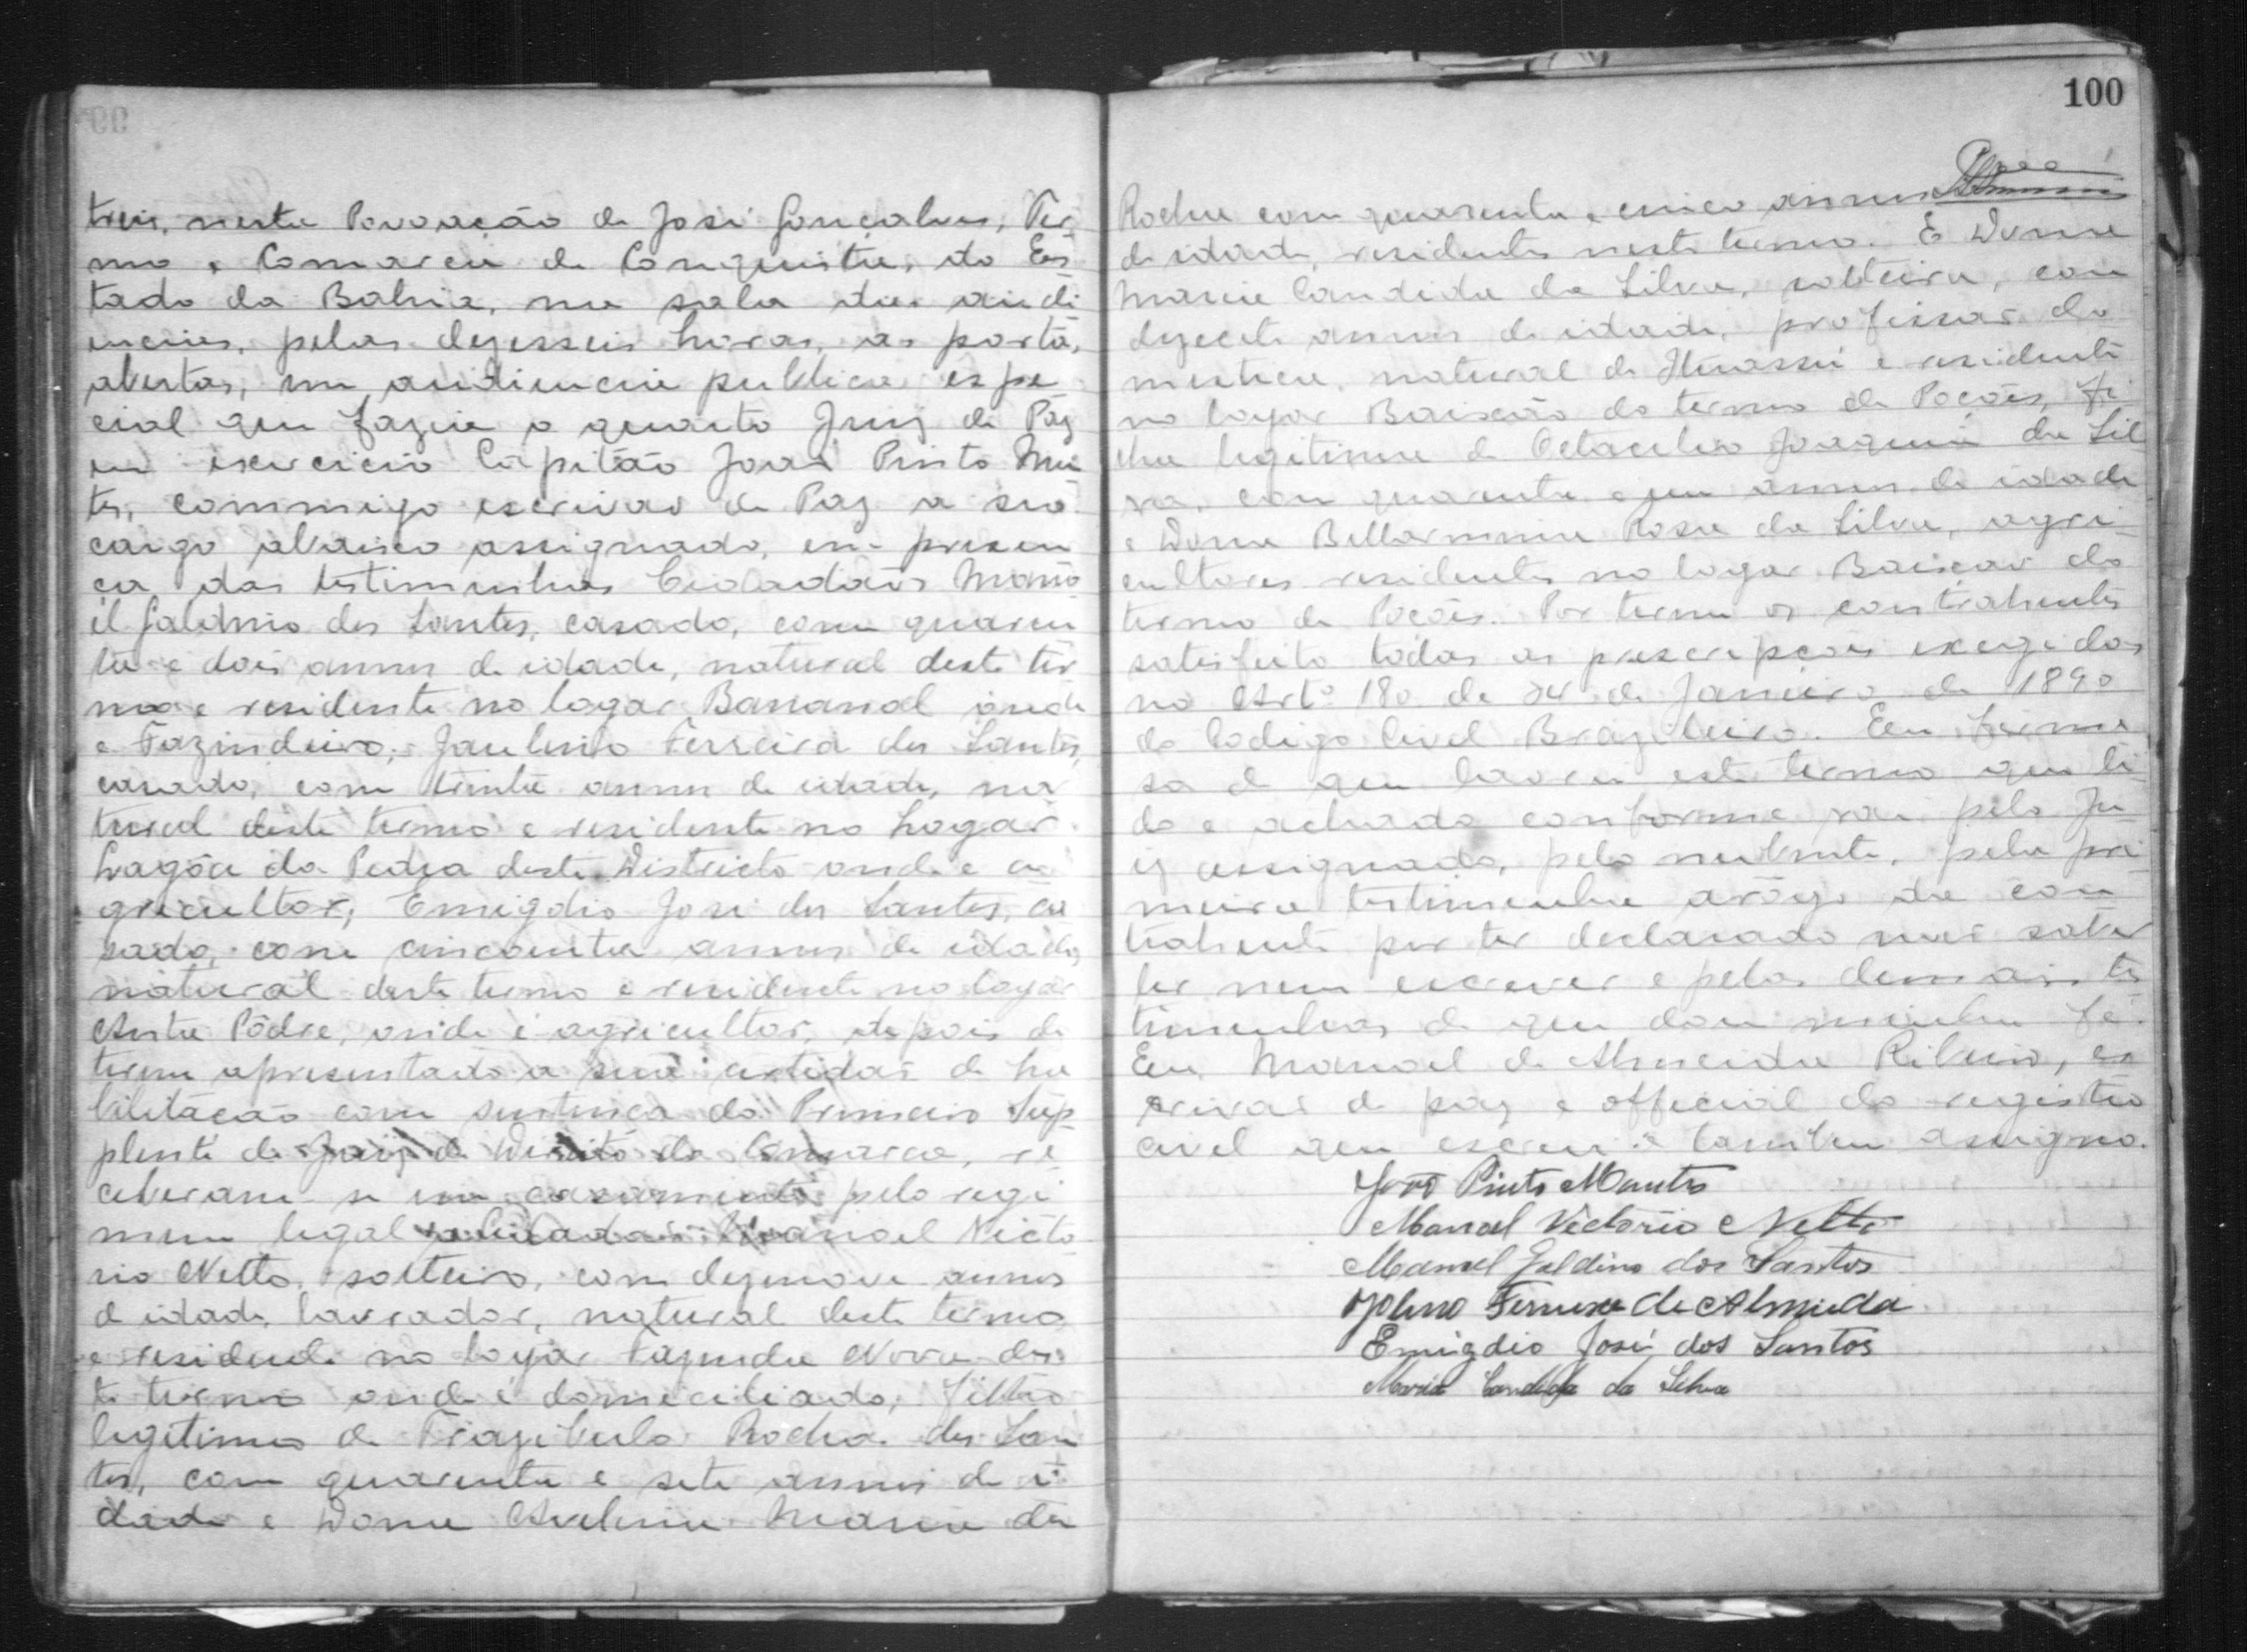 treis, nesta Povoação de José Gonçalves, Ter
mo e Comarca de Conquista, do Es
tado da Bahia, na sala das audi
encias, pelas dezesseis horas, as portas
abertas, em audiencia publica espe
cial que fazia o quarto Juiz de Paz
em exercicio Capitão João Pinto Man
tes, commigo escrivão de Paz a seo
cargo abaixo assignado, em presen
ça das testimunhas Cidadãos Mano
el Galdino dos Santos, casado, com quaren
ta e dois annos de idade, natural deste ter
mo e residente no logar Bananal onde
e Fazindeiro, Ferreira dos Santos,
casado, com trinta annos de idade, na
tural deste termo e residente no Logar
Lagôa da Pedra deste Districto onde e a
gricultor, Emigdio José dos Santos, ca
sado, com cincoenta annos de idade,
natural deste termo e residente no logar
Anta Pôdre, onde é agricultor, depois de
terem apresentado a sua certidão de ha
bilitação com sentença do Primeiro Sup
plente de Juiz de Direito da Comarca, re
ceberam se em casamento pelo regi
mem legal o Cidadão Manoel Victo
rio Netto, solteiro, com dezenove annos
d idade, lavrador, natural deste termo
e residente no logar Fazenda Nova des
te termo onde é domeciliado, filho
legitimo de Rocha dos San
tos, com quarenta e sete annos de i
dade e Dona Avelina Maria da
100
Rocha com quarenta e cinco annos
de idade, residentes neste termo. E Dona
Maria Candida da Silva, solteira, com
dezecete annos de idade, profissão do
mestica, natural de Ituassú e residente
no logar Baixão do termo de Poções, fi
lha legitima de Octacilio Joaquim da Sil
va, com quarenta e um annos de idade
e Dona Bellarmina Rosa da Silva, agri
cultores residentes no logar Baixão do
termo de Poções. Por terem os contrahentes
satisfeito todas as prescripções exegidas
no Artº 180 de 24 de Janeiro de 1890
do Codigo Civel Brazileiro. Em firme
sa d que lavrei este termo que li
do e achado conforme vai pelo Ju
iz assignado, pelo nubente, pela pri
meira testimunha arôgo da con
trahente por ter declarado não saber
ler nem escrever e pelas demais tes
timunhas de que dou minha fé.
Eu Manoel de Almeida Ribeiro, es
crivão de paz e official do registro
civel que escrevi e tambem assigno.
João Pinto Mantes
Manoel Victorio Netto
Manoel Galdino dos Santos
Ferreira de Almeida
Emigdio José dos Santos
Maria Candida da Silva